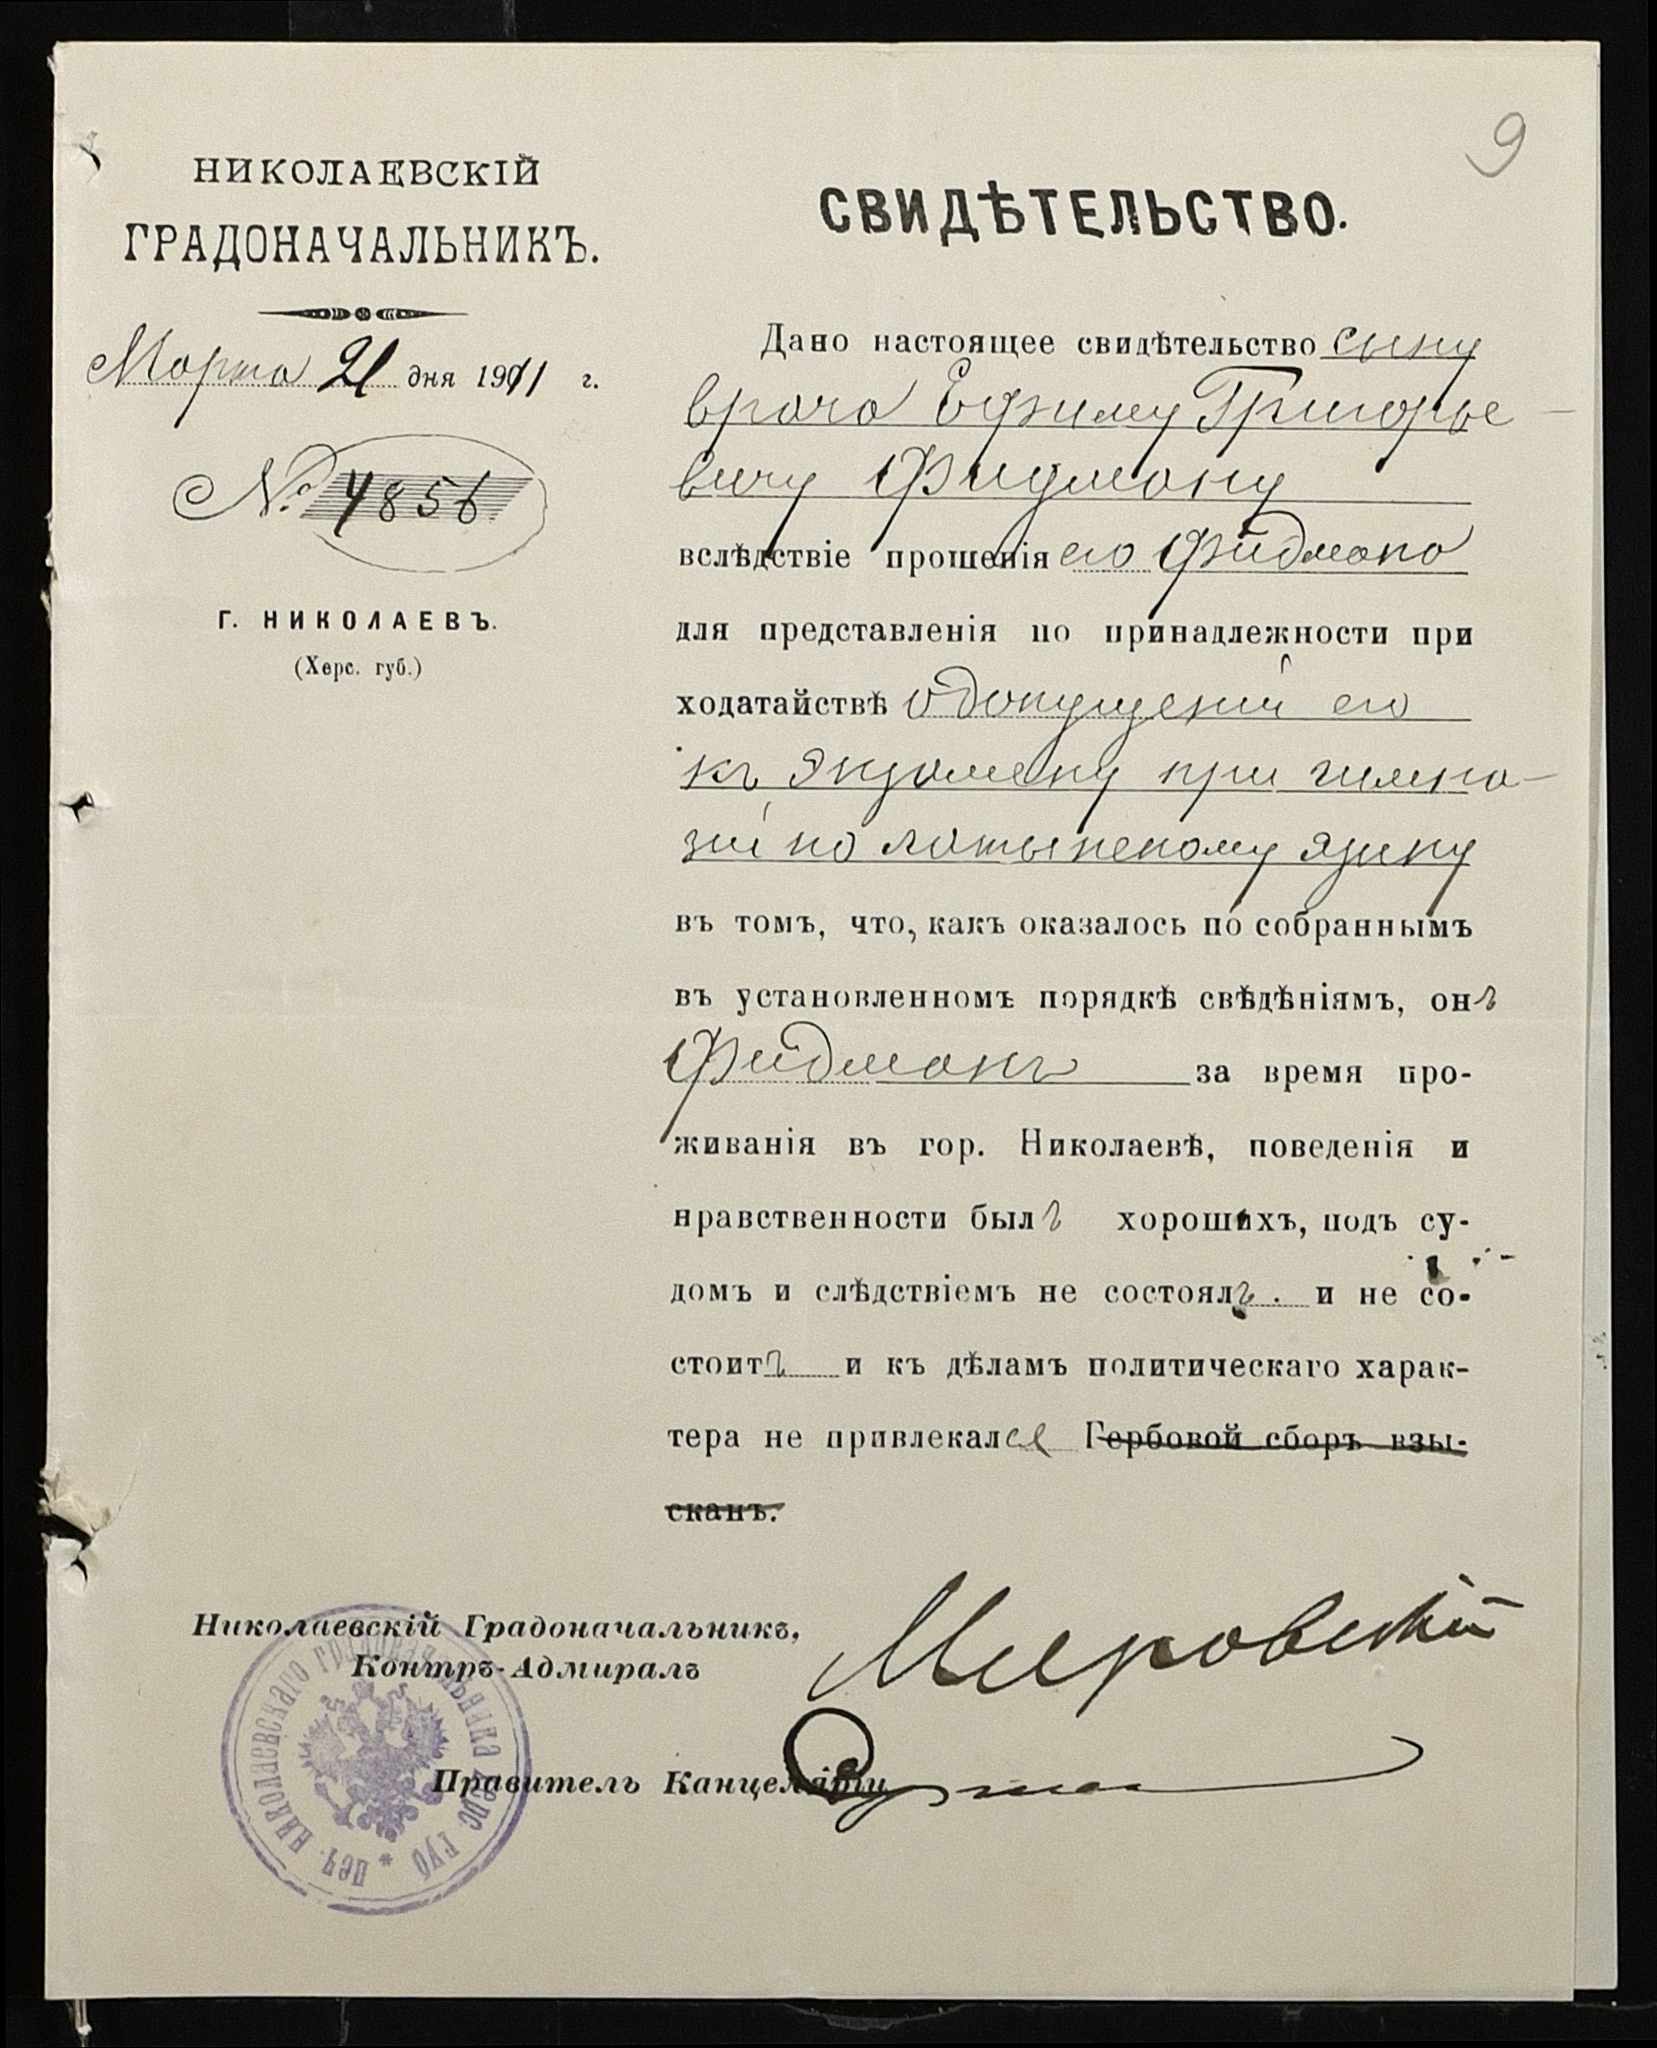 9
НИКОЛАЕВСКІЙ
ГРАДОНАЧАЛЬНИКЪ.
Марта 21 дня 1911 г.
№ 4856
Г. НИКОЛАЕВЪ.
(Херс. губ.)
СВИДѢТЕЛЬСТВО.
Дано настоящее свидѣтельство сыну
врача Ефиму Григорье-
вичу Фидману
вслѣдствіе прошенія его Фидмана
для представленія по принадлежности при
ходатайствѣ о допущеніи его
къ экзамену при гимна-
зіи по латынскому языку
въ томъ, что, какъ оказалось по собраннымъ
въ установленномъ порядкѣ свѣдѣніямъ, онъ
Фидманъ за время про-
живанія въ гор. Николаевѣ, поведенія и
нравственности былъ хорошихъ, подъ су-
домъ и слѣдствіемъ не состоялъ и не со-
стоитъ и къ дѣламъ политическаго харак-
тера не привлекался Гербовой сборъ взы-
сканъ.
Николаевскій Градоначальникъ,
Контръ-Адмиралъ
Правитель Канцеляріи
ПЕЧ. НИКОЛАЕВСКАГО ГРАДОНАЧАЛЬНИКА ХЕРС ГУБ *